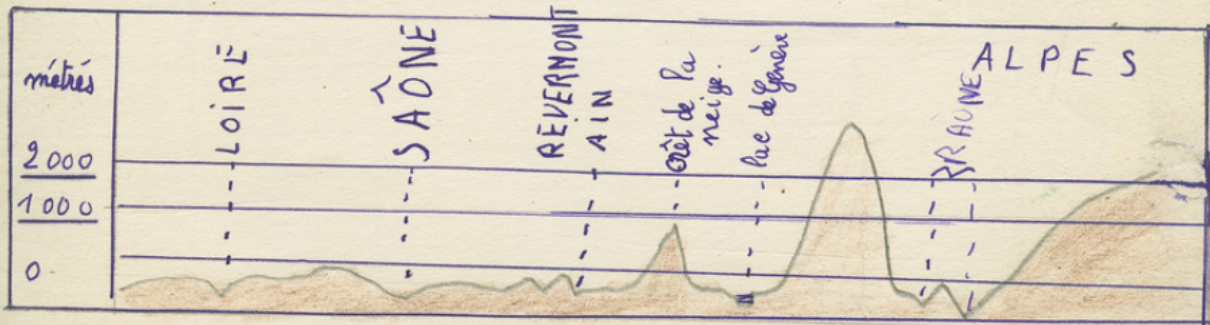 mètrés
2000
1000
0
LOIRE
SAÔNE
RÉVERMONT
AIN
Crêt de la
neige.
lac de Genève
ALPES